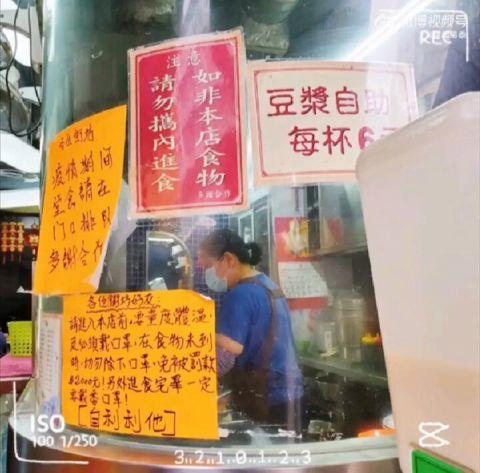 注意
如非本店食物
請勿攜內進食
多謝合作
豆漿自助
每杯6
各位街坊
疫情期間
堂食請在
門口排隊
多謝合作
各位街坊好友:
請進入本店前,要量度體溫,
及必須戴口罩,在食物未到
時,切勿除下口罩,免被罰款
$2000元!另外進食完畢一定
要戴番口罩!
[自利利他]
REC
ISO
100 1/250
3 2 1 0 1 2 3
博视频号